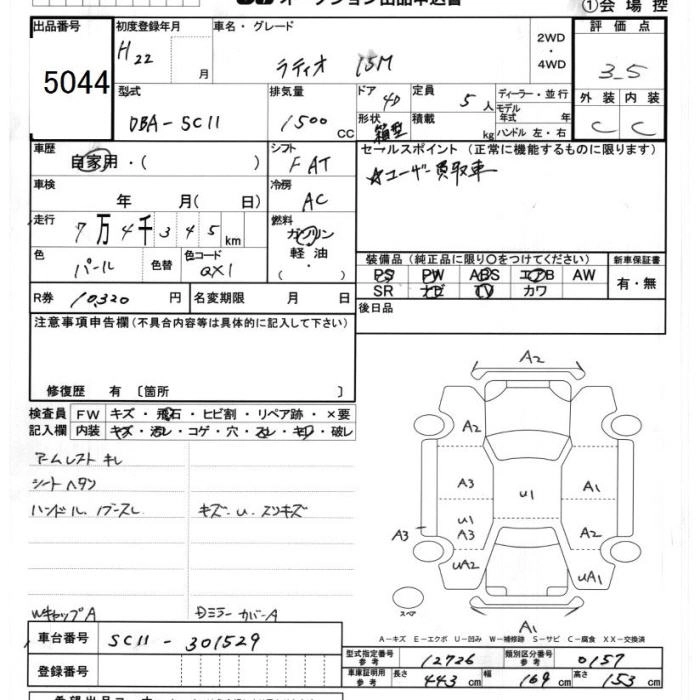 オークション出品申込書
①会場控
出品番号 初度登録年月 車名・グレード 2WD・4WD 評価点
5044 H22 月 ラティオ 15M 3.5
型式 排気量 ドア 定員 ディーラー・並行 外装 内装
DBA-SC11 1500 CC 4D 5人 モデル年式 年 C C
形状 箱型 積載 kg ハンドル 左・右
車歴 シフト セールスポイント(正常に機能するものに限ります)
自家用・( ) FAT ☆ユーザー買取車
車検 冷房
年 月( 日) AC
走行 燃料
7万4千345km ガソリン
軽油
色 色替 色コード ・
パール QX1
装備品(純正品に限り○をつけてください) 新車保証書
PS PW ABS エアB AW 有・無
SR ナビ TV カワ
R券 10,320円 名変期限 月 日
後日品
注意事項申告欄(不具合内容等は具体的に記入して下さい)
修復歴 有〔箇所 〕
検査員 FW キズ・飛石・ヒビ割・リペア跡・×要
記入欄 内装 キズ・汚レ・コゲ・穴・スレ・キレ・破レ
アームレスト キレ
シート ヘタリ
ハンドル、ノブースレ キズ・U・スリキズ
WキャップA Dミラー カバーA
A2
A2
A3 U1 A1
U1
A3 A3 A2
UA2 UA1
スペア
A1
A-キズ E-エクボ U-凹み W-補修跡 S-サビ C-腐食 XX-交換済
車台番号 SC11-301529
型式指定番号 参考 12726 類別区分番号 参考 0157
登録番号
車庫証明用 参考 長さ 443cm 幅 169cm 高さ 153cm